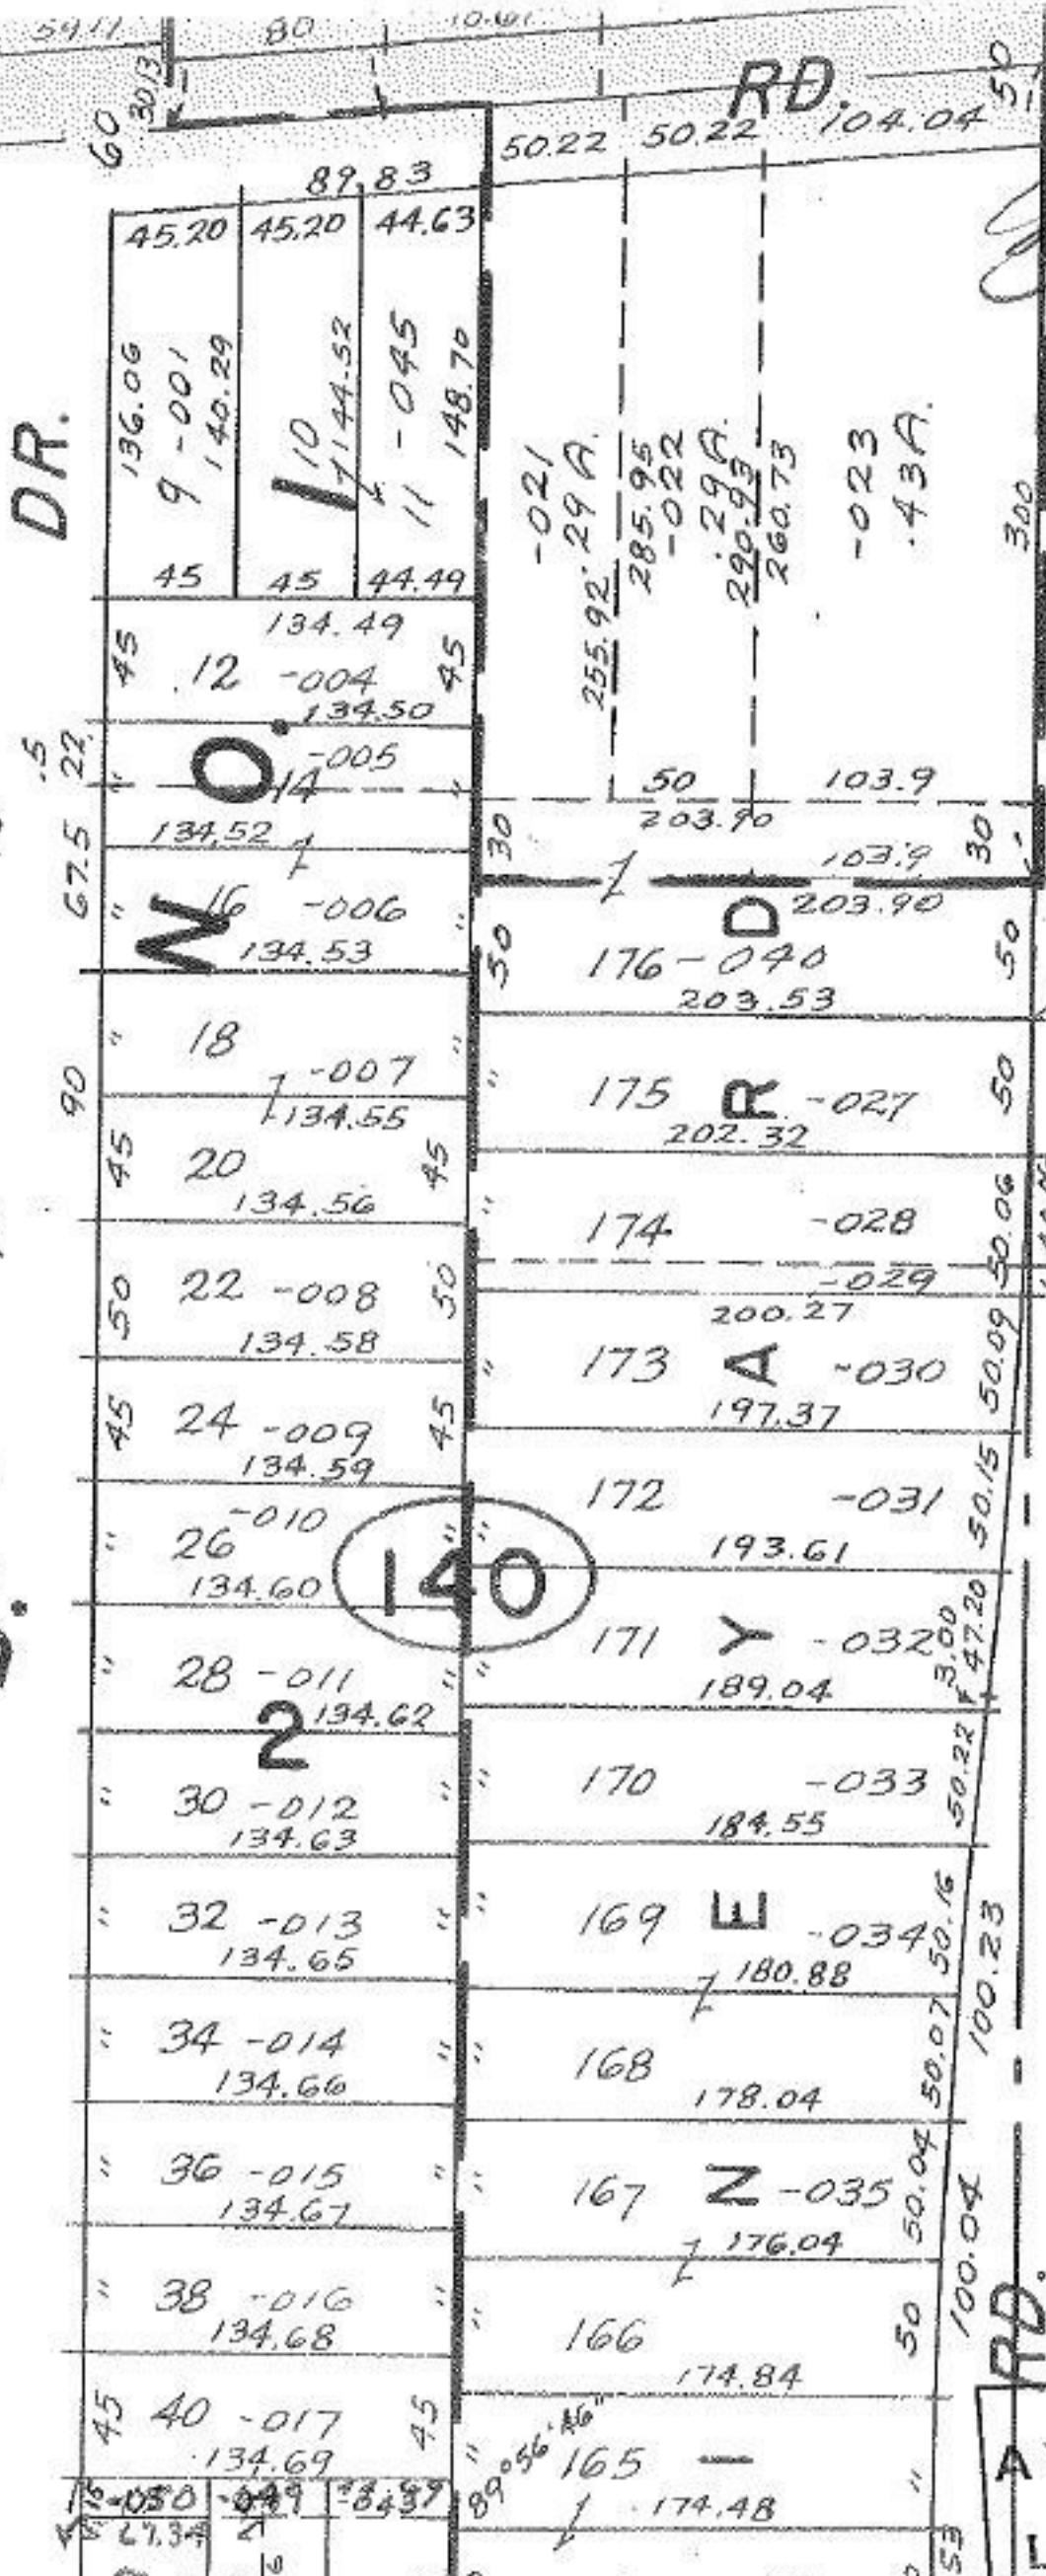 80
RD.
50
60
30.13
50.22 50.22 104.04
89.83
45.20 45.20 44.63
DR.
136.06
9 -001
140.29
10
144.52
11 -045
148.70
-021
.29 A.
255.92
285.95
-022
.29 A.
290.93
260.73
-023
.43 A.
300
45 45 44.49
134.49
45 12 -004 45
134.50
.5
22
-005
" 14 "
50 103.9
203.90
134.52
30 103.9 30
67.5
203.90
" 16 -006 "
134.53
NO. 2
50 176-040 50
203.53
" 18 "
-007
90
134.55
" 175 -027 50
202.32
45 20 45
134.56
" 174 -028 50.06
-029
200.27
50 22 -008 50
134.58
" 173 -030 50.09
197.37
45 24 -009 45
134.59
172 -031 50.15
193.61
-010
" 26 " "
134.60
140
171 -032 3.00
47.20
189.04
" 28 -011 " "
134.62
" 170 -033 50.22
184.55
" 30 -012 "
134.63
" 169 -034 50.16
180.88
100.23
" 32 -013 "
134.65
" 168 50.07
178.04
" 34 -014 "
134.66
" 167 -035 50.04
176.04
100.04
" 36 -015 "
134.67
" 166 50
174.84
" 38 -016 "
134.68
RD.
45 40 -017 45
134.69
89°56'46"
" 165 "
174.48
-050
67.34
53
A
D
R
A
Y
E
N
I